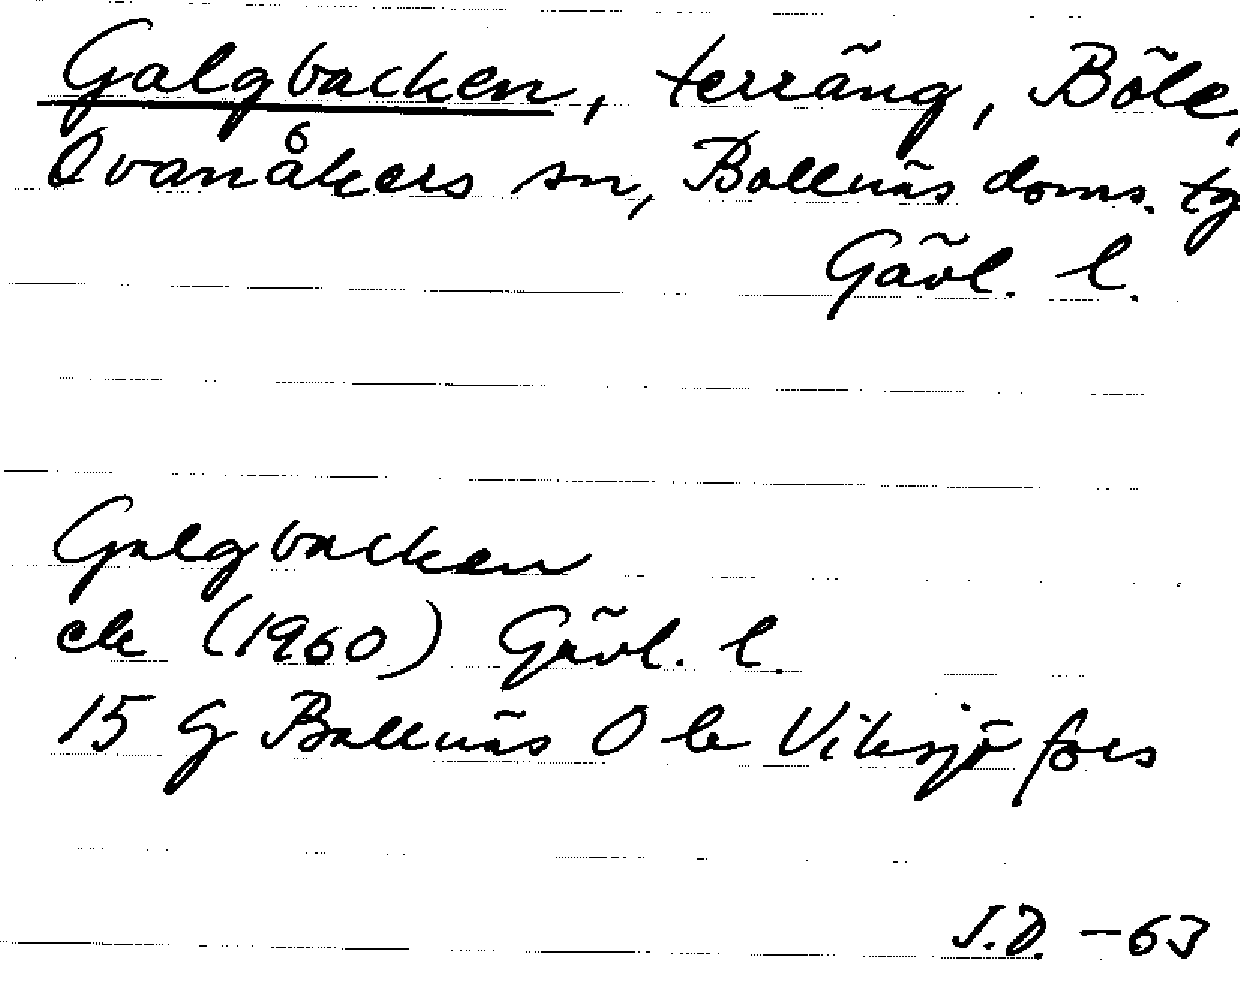 Galgbacken, terräng, Böle,
Ovanåkers sn, Bollnäs doms. tg
Gävl. l.
Galgbacken
ek (1960) Gävl. l.
15 G Bollnäs O b Viksjöfors
J.D. -63